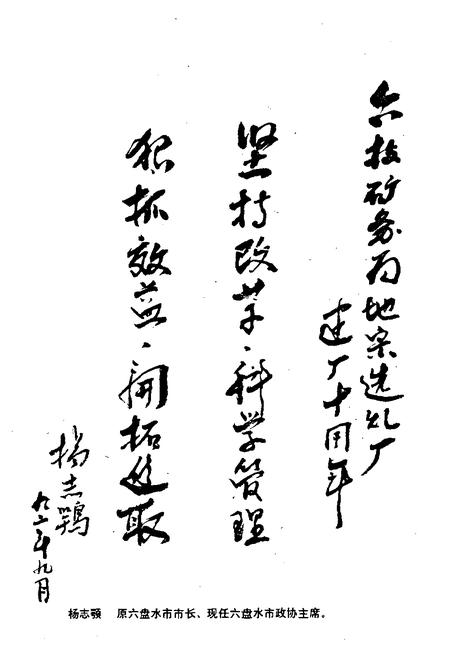 六枝矿务局地宗选煤厂
建厂十周年
坚持改革、科学管理
狠抓效益、開拓进取
杨志鹗
九二年九月
杨志颚 原六盘水市市长、现任六盘水市政协主席。